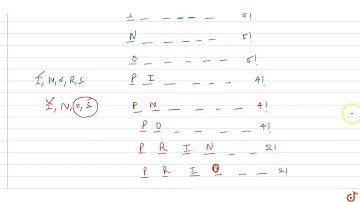 I _ _ _ _ _ 5!
N _ _ _ _ _ 5!
O _ _ _ _ _ 5!
I, N, O, R, S P I _ _ _ _ 4!
I, N, O, S P N _ _ _ _ 4!
P O _ _ _ _ 4!
P R I N _ _ 2!
P R I O _ _ 2!